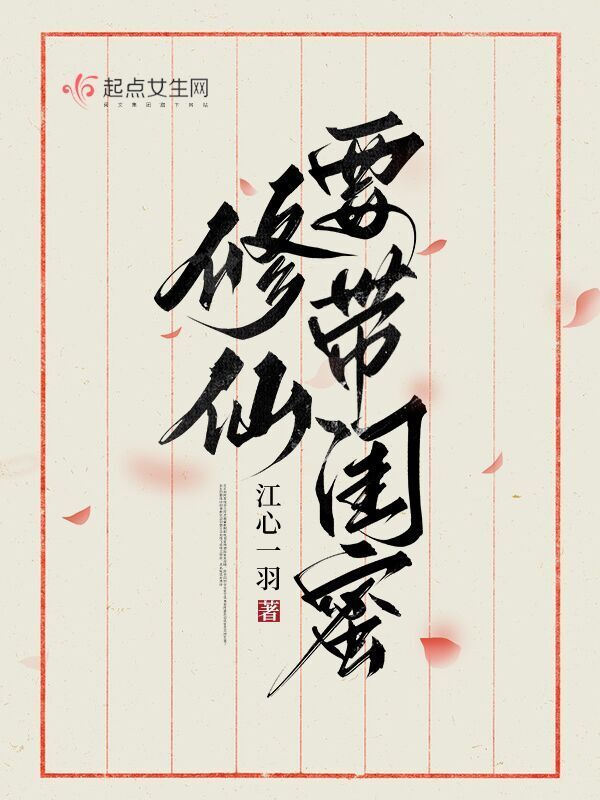 起点女生网
阅文集团旗下网站
修仙
要带闺蜜
江心一羽 著